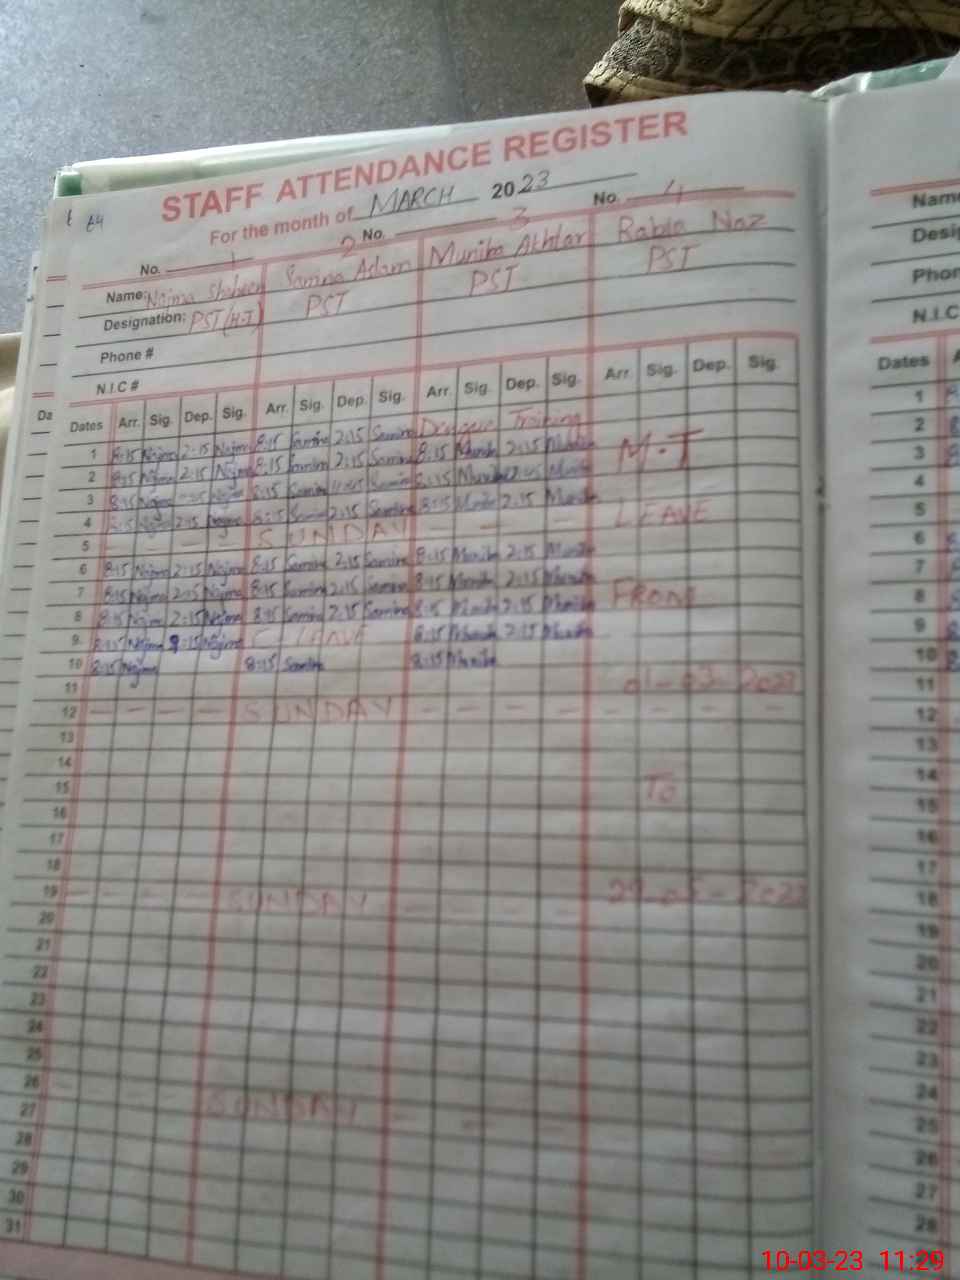 64
STAFF ATTENDANCE REGISTER
For the month of MARCH 2023
No. 1 2 No. 3 No. 4
Name: Najma Shaheen Samina Aslam Muniba Akhtar Rabia Naz
Designation: PST (H-T) PST PST PST
Phone #
N.I.C #
Dates Arr. Sig. Dep. Sig. Arr. Sig. Dep. Sig. Arr. Sig. Dep. Sig. Arr. Sig. Dep. Sig.
1 8:15 Najma 2:15 Najma 8:15 Samina 2:15 Samina Training
2 8:15 Najma 2:15 Najma 8:15 Samina 2:15 Samina 8:15 Muniba 2:15 Muniba M.T
3 8:15 Najma Najma 8:15 Samina Samina 8:15 Muniba Muniba
4 8:15 Najma 2:15 Najma 8:15 Samina 2:15 Samina 8:15 Muniba 2:15 Muniba LEAVE
5 - - - - SUNDAY - - - -
6 8:15 Najma 2:15 Najma 8:15 Samina 2:15 Samina 8:15 Muniba 2:15 Muniba
7 8:15 Najma 2:15 Najma 8:15 Samina 2:15 Samina 8:15 Muniba 2:15 Muniba FROM
8 8:15 Najma 2:15 Najma 8:15 Samina 2:15 Samina 8:15 Muniba 2:15 Muniba
9 8:15 Najma 2:15 Najma C LEAVE 8:15 Muniba 2:15 Muniba
10 8:15 Najma 8:15 Samina 8:15 Muniba
11 01-03-2023
12 - - - - SUNDAY - - - - - - - -
13
14
15 To
16
17
18
19 - - - - SUNDAY - - - - 29-05-2023
20
21
22
23
24
25
26 - - - - SUNDAY - - -
27
28
29
30
31
Da
Name
Desig
Phon
N.I.C
Dates A
1
2
3
4
5
6
7
8
9
10
11
12
13
14
15
16
17
18
19
20
21
22
23
24
25
26
27
28
10-03-23 11:29